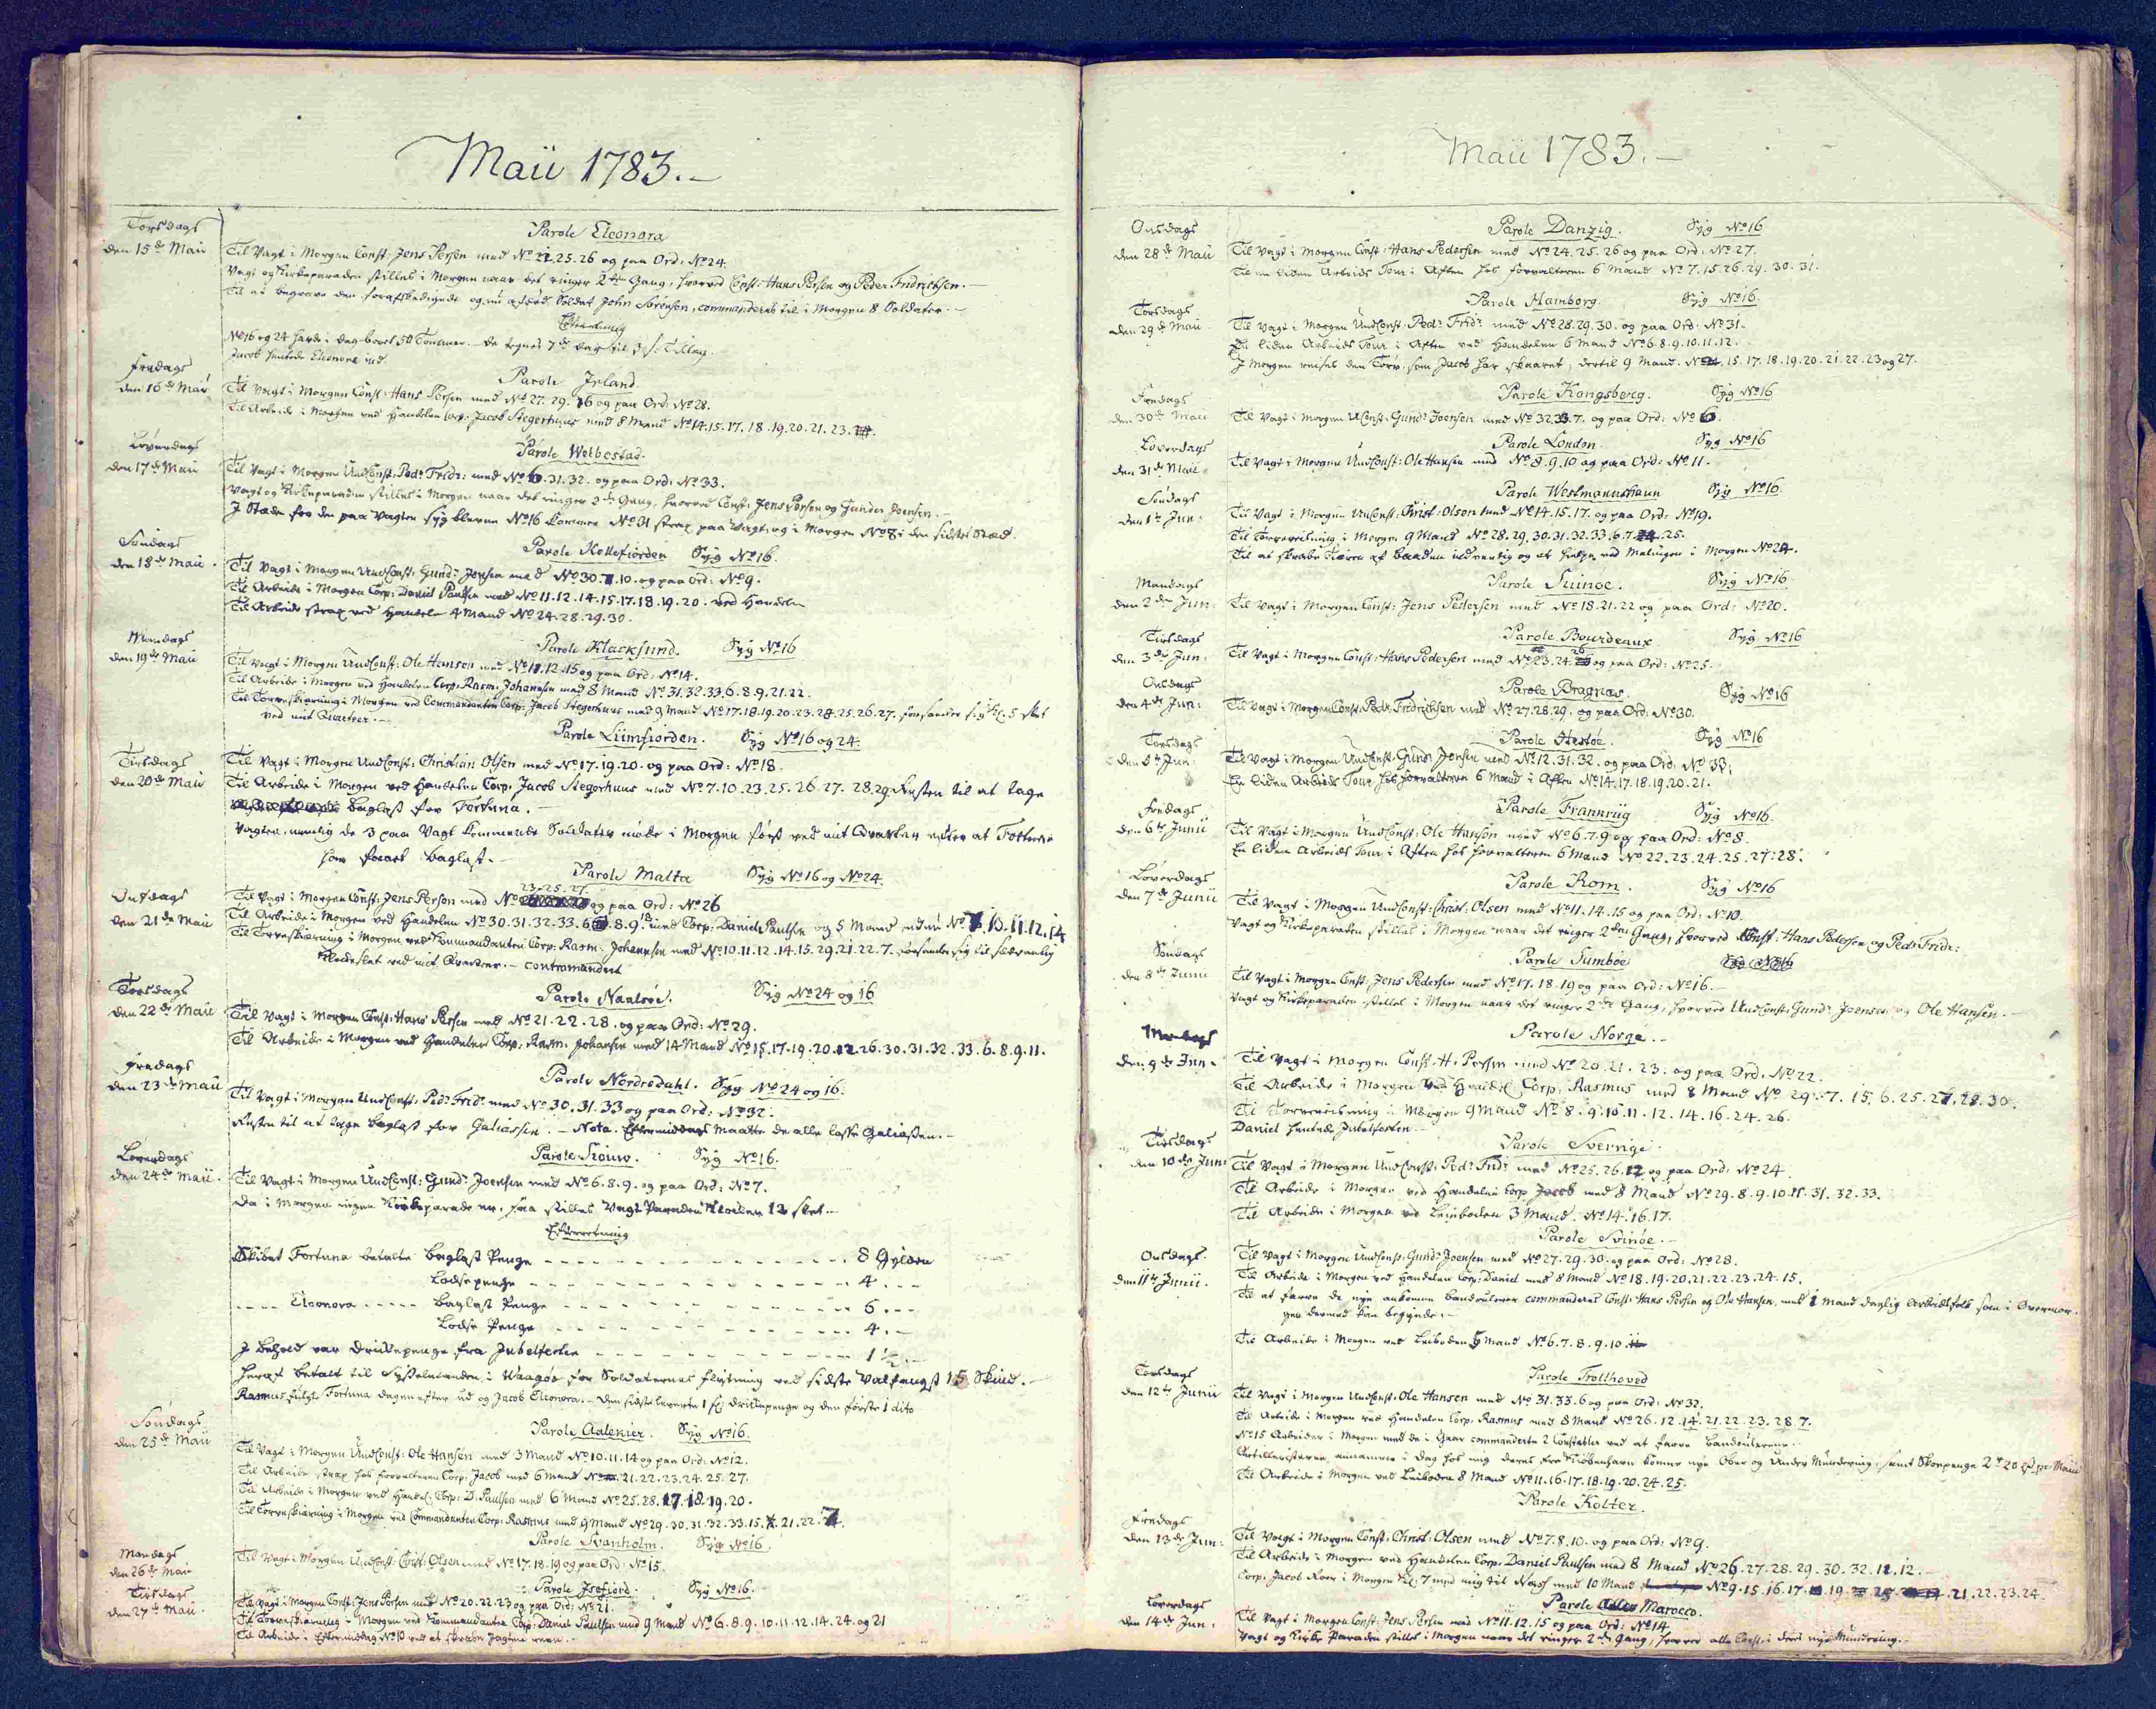 Maii 1783.-
Torsdags
den 15de Maii
Parole Eleonora
Til Vagt i Morgen Const: Jens Persen med No 22.25.26 og paa Ord: No 24.
Vagt og Kirkeparaden stilles i Morgen naar det ringer 2den Gang, hvorved Const: Hans Persen og Peder Fridrichsen.-
Til at begrave den forafskedigede og nu afdöd Soldat John Sörensen, commanderes til i Morgen 8 Soldater.-
Efterretning
No 16 og 24 havde i dag 50 Tönner.- De 7de dag til 3 s: Tillæg.
Jacob hentede Eleonora ind.
Fredags
den 16de Maii
Parole Irland.
Til Vagt i Morgen Const: Hans Persen med No 27.29.16 og paa Ord: No 28.
Til Arbeide i Morgen ved Handelen Corp: Jacob Stegerhuus med 8 Mand No 14.15.17.18.19.20.21.23.
Löverdags
den 17de Maii
Parole Welbestad.
Til Vagt i Morgen UndConst: Pedr Fridr: med No 6.31.32. og paa Ord: No 33.
Vagt og Kirkeparaden stilles i Morgen naar det ringer 2de Gang, hvorved Const: Jens Persen og Gunder Joensen.-
I Stæden for den paa Vagten syg blevne No 16 kommer No 31 strax paa Vagt, og i Morgen No 8 i den sidstes Stæd.
Söndags
den 18de Maii.
Parole Kollefiorden Syg No 16.
Til Vagt i Morgen UndConst: Gundr Jensen med No 30.7.10. og paa Ord: No 9.
Til Arbeide i Morgen Corp: Daniel Paulsen med No 11.12.14.15.17.18.19.20. ved Handelen
Til Arbeide strax ved Handelen 4 Mand No 24.28.29.30.
Mandags
den 19de Maii
Parole Klacksund. Syg No 16
Til Vagt i Morgen UndConst: Ole Hansen med No 11.12.15 og paa Ord: No 14.
Til Arbeide i Morgen ved Handelen Corp: Rasm: Johansen med 8 Mand No 31.32.33.6.8.9.21.22.
Til Torveskiæring i Morgen ved Commandanten Corp: Jacob Stegerhuus med 9 Mand No 17.18.19.20.23.28.25.26.27. forsamler sig Kl. 5 slet
ved mit Qvarteer.-
Tirsdags
den 20de Maii
Parole Liimfiorden. Syg No 16 og 24.
Til Vagt i Morgen UndConst: Christian Olsen med No 17.19.20. og paa Ord: No 18.
Til Arbeide i Morgen ved Handelen Corp: Jacob Stegerhuus med No 7.10.23.25.26.27.28.29. Resten til at tage
Baglast for Fortuna.-
Vagten, nemlig de 3 paa Vagt kommende Soldater möde i Morgen först ved mit Qvarteer efter at Fortuna
har faaet Baglast.-
Onsdags
den 21de Maii
Parole Malta Syg No 16 og No 24.
Til Vagt i Morgen Const: Jens Persen med No 23.25.27 og paa Ord: No 26
Til Arbeide i Morgen ved Handelen No 30.31.32.33.6.8.9.18 med Corp: Daniel Paulsen og 5 Mand endnu No 7.10.11.12.14
Til Torveskiæring i Morgen ved Kommandanten Corp: Rasm: Johannsen med No 10.11.12.14.15.29.21.22.7. forsamler sig til sædvanlig
Klokeslet ved mit Qvarteer.- contramandert
Torsdags
den 22de Maii
Parole Naalsöe. Syg No 24 og 16
Til Vagt i Morgen Const: Hans Persen med No 21.22.28. og paa Ord: No 29.
Til Arbeide i Morgen ved Handelen Corp: Rasm: Johansen med 14 Mand No 15.17.19.20.12.26.30.31.32.33.6.8.9.11.
Fredags
den 23de Maii
Parole Nordredahl. Syg No 24 og 16.
Til Vagt i Morgen UndConst: Pedr Fridr med No 30.31.33 og paa Ord: No 32.
Resten til at tage Baglast for Galiassen.- Nota. Eftermiddags maatte de alle losse Galiassen.-
Löverdags
den 24de Maii.
Parole Siouw. Syg No 16.
Til Vagt i Morgen UndConst: Gundr Joensen med No 6.8.9. og paa Ord: No 7.
Da i Morgen ingen Kirkeparade er, saa stilles Vagt Paraden Klocken 12 slet.-
Efterretning
Skibet Fortuna betalte Baglast Penge 8 Gylden
Lodsepenge 4.--
Eleonora Baglast Penge 6.--
Lodse Penge 4.-
I behold var drikkepenge fra Jubelfesten 1½.-
heraf betalt til Sysselmanden i Waagöe for Soldaternes flytning ved sidste Valfangst 15 Skind.-
Rasmus fulgte Fortuna dagen efter ud og Jacob Eleonora.- den sidste leverte 1 fl: drikkepenge og den förste 1 dito
Söndags
den 25de Maii
Parole Aalekier. Syg No 16.
Til Vagt i Morgen UndConst: Ole Hansen med 3 Mand No 10.11.14 og paa Ord: No 12.
Til Arbeide strax hos Forvalteren Corp: Jacob med 6 Mand No 21.22.23.24.25.27.
Til Arbeide i Morgen ved Handel: Corp: D: Paulsen med 6 Mand No 25.28.17.18.19.20.
Til Torveskiæring i Morgen ved Commandanten Corp: Rasmus med 9 Mand No 29.30.31.32.33.15.21.22.7.
Mandags
den 26de Maii
Parole Svanholm. Syg No 16.
Til Vagt i Morgen UndConst: Christ: Olsen med No 17.18.19 og paa Ord: No 15.
Tirsdags
den 27de Maii.
Parole Isefiord. Syg No 16.
Til Vagt i Morgen Const: Jens Persen med No 20.22.23 og paa Ord: No 21.
Til Torveskiæring i Morgen ved Kommandanten Corp: Daniel Paulsen med 9 Mand No 6.8.9.10.11.12.14.24. og 21
Til Arbeide i Eftermiddag No 10 ved at skrabe Jagten reen.-
Maii 1783.-
Onsdags
den 28de Maii
Parole Danzig. Syg No 16
Til Vagt i Morgen Const: Hans Pedersen med No 24.25.26 og paa Ord: No 27.
Til en liden Arbeids Tour i Aften hos Forvalteren 6 Mand No 7.15.26.29.30.31.
Torsdags
den 29de Maii.
Parole Hamborg. Syg No 16.
Til Vagt i Morgen UndConst: Pedr Fridr med No 28.29.30. og paa Ord: No 31.
En liden Arbeids Tour i Aften ved Handelen 6 Mand No 6.8.9.10.11.12.
I Morgen reises den Törv, som Jacob har skaaret, dertil 9 Mand. No 15.17.18.19.20.21.22.23 og 27.
Fredags
den 30de Maii
Parole Kongsberg. Syg No 16
Til Vagt i Morgen UConst: Gundr Joensen med No 32.33.7. og paa Ord: No 6.
Löverdags
den 31de Maii.
Parole London. Syg No 16
Til Vagt i Morgen UndConst: Ole Hansen med No 8.9.10 og paa Ord: No 11.
Söndags
den 1te Jun:
Parole Westmannshaun Syg No 16.
Til Vagt i Morgen UnConst: Christ: Olsen med No 14.15.17. og paa Ord: No 19.
Til Törvereisning i Morgen 9 Mand No 28.29.30.31.32.33.6.7.25.
Til at skrabe Tiæren af Baaden indvendig og at hielpe ved Malingen i Morgen No 24.
Mandags
den 2den Jun:
Parole Suinoe. Syg No 16.
Til Vagt i Morgen Const: Jens Pedersen med No 18.21.22 og paa Ord: No 20.
Tirsdags
den 3de Jun:
Parole Bourdeaux Syg No 16
Til Vagt i Morgen Const: Hans Pedersen med No 23.24.26 og paa Ord: No 25.
Onsdags
den 4de Jun:
Parole Bragnæs. Syg No 16
Til Vagt i Morgen Const: Pedr Fridrichsen med No 27.28.29. og paa Ord: No 30.
Torsdags
den 5te Jun:
Parole Hestöe. Syg No 16
Til Vagt i Morgen UndConst: Gundr Jensen med No 12.31.32. og paa Ord: No 33.
En liden Arbeids Tour hos Forvalteren 6 Mand i Aften No 14.17.18.19.20.21.
Fredags
den 6te Junii
Parole Frannriig Syg No 16.
Til Vagt i Morgen UndConst: Ole Hansen med No 6.7.9 og paa Ord: No 8.
En liden Arbeids Tour i Aften hos Forvalteren 6 Mand No 22.23.24.25.27.28.
Löverdags
den 7de Junii
Parole Rom. Syg No 16
Til Vagt i Morgen UndConst: Christ: Olsen med No 11.14.15 og paa Ord: No 10.
Vagt og Kirkeparaden stilles i Morgen naar det ringer 2den Gang, hvorved Const: Hans Pedersen og Pedr Fridr:
Söndags
den 8de Junii
Parole Sumböe Syg No 16
Til Vagt i Morgen Const: Jens Pedersen med No 17.18.19 og paa Ord: No 16.-
Vagt og Kirkeparaden stilles i Morgen naar det ringer 2de Gang, hvorved UndConst: Gundr Joensen og Ole Hansen.-
Mandags
den 9de Jun.
Parole Norge.-
Til Vagt i Morgen Const: H: Persen med No 20.21.23. og paa Ord: No 22.
Til Arbeide i Morgen ved Handel: Corp: Rasmus med 8 Mand No 29.7.15.6.25.27.28.30.
Til Törvereisning i Morgen 9 Mand No 8.9.10.11.12.14.16.24.26.
Daniel hentede Jubelfesten.-
Tirsdags
den 10de Jun:
Parole Sverrige.
Til Vagt i Morgen UndConst: Pedr Fridr med No 25.26.12 og paa Ord: No 24.
Til Arbeide i Morgen ved Handelen Corp Jacob med 8 Mand No 29.8.9.10.11.31.32.33.
Til Arbeide i Morgen ved Leieboden 3 Mand. No 14.16.17.
Onsdags
den 11te Junii.
Parole Svinöe.-
Til Vagt i Morgen UndConst: Gundr Joensen med No 27.29.30. og paa Ord: No 28.
Til Arbeide i Morgen ved Handelen Corp: Daniel med 8 Mand No 18.19.20.21.22.23.24.15.
Til at farve de nye ankomne Bandoulerer commanderes Const: Hans Persen og Ole Hansen, med 1 Mand daglig Arbeidsfolk som i Overmor-
gen dermed kan begynde.-
Til Arbeide i Morgen ved Leieboden 5 Mand No 6.7.8.9.10.
Torsdags
den 12te Junii
Parole Trollhoved
Til Vagt i Morgen UndConst: Ole Hansen med No 31.33.6 og paa Ord: No 32.
Til Arbeide i Morgen ved Handelen Corp: Rasmus med 8 Mand No 26.12.14.21.22.23.28.7.
No 15 Arbeider i Morgen med de i Gaar commanderte 2 Constabler ved at farve Bandoulererne.-
Artilleristerne annammer i Dag hos mig deres fra Kiöbenhavn komne nye Over og Under Mundering, samt Skoepenge 2 rd 20 s pr: Mand
Til Arbeide i Morgen ved Leieboden 8 Mand No 11.16.17.18.19.20.24.25.
Fredags
den 13de Jun:
Parole Kolter.
Til Vagt i Morgen Const: Christ: Olsen med No 7.8.10. og paa Ord: No 9.
Til Arbeide i Morgen ved Handelen Corp: Daniel Paulsen med 8 Mand No 26.27.28.29.30.32.11.12.
Corp: Jacob Roer i Morgen Kl: 7 med mig til Næss med 10 Mand No 9.15.16.17.19.21.22.23.24.
Löverdags
den 14de Jun.
Parole Marocco.
Til Vagt i Morgen Const: Jens Persen med No 11.12.15 og paa Ord: No 14
Vagt og Kirke Paraden stilles i Morgen naar det ringer 2de Gang, hvorved alle Const: i deres nye Mundering.-